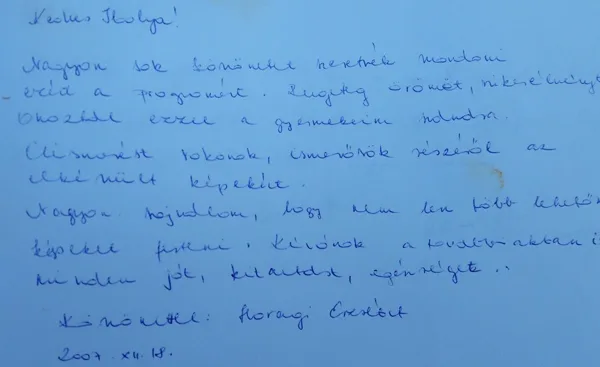 Kedves Ibolya!
Nagyon sok köszönetet szeretnék mondani
ezért a programért. Rengeteg örömöt, sikerélményt
okoztál ezzel a gyermekeim számára.
Elismerést rokonok, ismerősök részéről az
elkészült képekért.
Nagyon sajnálom, hogy nem lesz több lehetős
képeket festeni. Kívánok a továbbiakban i
minden jót, kitartást, egészséget..
Köszönettel: Erzsébet
2007. XII. 18.